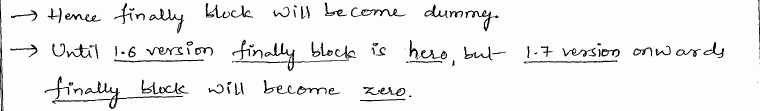 → Hence finally block will become dummy.
→ Until 1.6 version finally block is hero, but 1.7 version onwards
finally block will become zero.